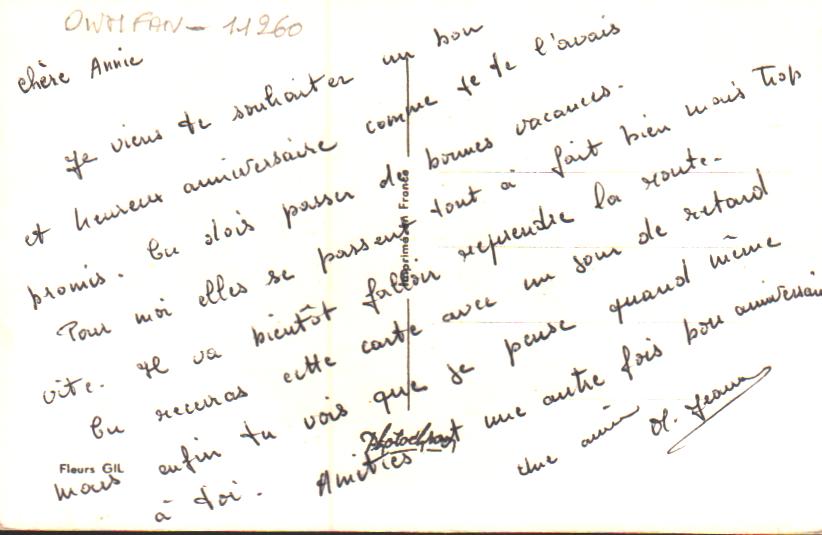 OWMFAN - 11260
Chère Annie
Je viens te souhaiter un bon
et heureux anniversaire comme je te l'avais
promis. Tu dois passer de bonnes vacances.
Pour moi elles se passent tout à fait bien mais trop
vite. Il va bientôt falloir reprendre la route.
Tu recevras cette carte avec un jour de retard
mais enfin tu vois que je pense quand même
à toi. Amitiés une autre fois bon anniversaire
une amie M. Jeanne
Imprimé en France
Photochrome
Fleurs GIL